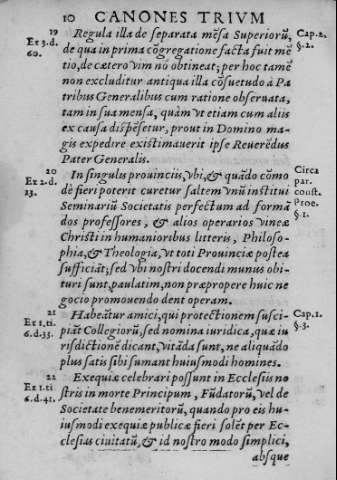 10 CANONES TRIVM
19
Ex 3.d.
60.
Regula illa de separata mẽsa Superiorũ,
de qua in prima cõgregatione facta fuit mẽ
tio, de cætero vim nõ obtineat; per hoc tamẽ
non excluditur antiqua illa cõsuetudo à Pa
tribus Generalibus cum ratione obseruata,
tam in sua mensa, quàm vt etiam cum aliis
ex causa dispẽsetur, prout in Domino ma-
gis expedire existimauerit ipse Reuerẽdus
Pater Generalis.
Cap.2.
§.2.
20
Ex 2.d.
23.
In singulis prouinciis, vbi, & quãdo cõmo
dè fieri poterit curetur saltem vnũ institui
Seminariũ Societatis perfectum ad formã
dos professores, & alios operarios vineæ
Christi in humanioribus litteris, Philoso-
phia, & Theologia, vt toti Prouinciæ postea
sufficiãt; sed vbi nostri docendi munus obi-
turi sunt, paulatim, non præpropere huic ne
gocio promouendo dent operam.
Circa
par.
const.
Proe.
§.1.
21
Ex 1.ti.
6.d.33.
Habeãtur amici, qui protectionem susci-
piãt Collegiorũ, sed nomina iuridica, quæ iu
risdictionẽ dicant, vitãda sunt, ne aliquãdo
plus satis sibi sumant huiusmodi homines.
Cap.1.
§.3.
22
Ex 1.ti
6.d.41.
Exequiæ celebrari possunt in Ecclesiis no
stris in morte Principum, Fũdatorũ, vel de
Societate benemeritorũ, quando pro eis hu-
iusmodi exequiæ publicæ fieri solẽt per Ec-
clesias ciuitatũ, & id nostro modo simplici,
absque